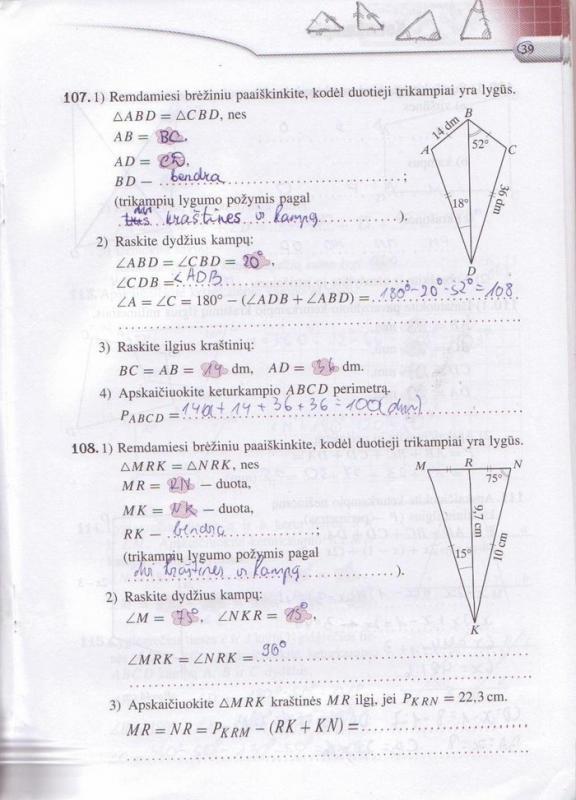 39
107. 1) Remdamiesi brėžiniu paaiškinkite, kodėl duotieji trikampiai yra lygūs.
△ABD = △CBD, nes
AB = BC,
AD = CD,
BD – bendra ;
(trikampių lygumo požymis pagal
kraštines ir kampą ).
B
14 dm
52°
A
C
18°
36 dm
D
2) Raskite dydžius kampų:
∠ABD = ∠CBD = 20°,
∠CDB = ∠ADB
∠A = ∠C = 180° − (∠ADB + ∠ABD) = 180° − 20° − 52° = 108
3) Raskite ilgius kraštinių:
BC = AB = 14 dm, AD = 36 dm.
4) Apskaičiuokite keturkampio ABCD perimetrą.
P_ABCD = 14 + 14 + 36 + 36 = 100 (dm)
108. 1) Remdamiesi brėžiniu paaiškinkite, kodėl duotieji trikampiai yra lygūs.
△MRK = △NRK, nes
MR = RN – duota,
MK = NK – duota,
RK – bendra ;
(trikampių lygumo požymis pagal
dvi kraštines ir kampą ).
M R N
75°
9,7 cm
15°
10 cm
K
2) Raskite dydžius kampų:
∠M = 75°, ∠NKR = 15°,
∠MRK = ∠NRK = 90°
3) Apskaičiuokite △MRK kraštinės MR ilgį, jei P_KRN = 22,3 cm.
MR = NR = P_KRM − (RK + KN) =